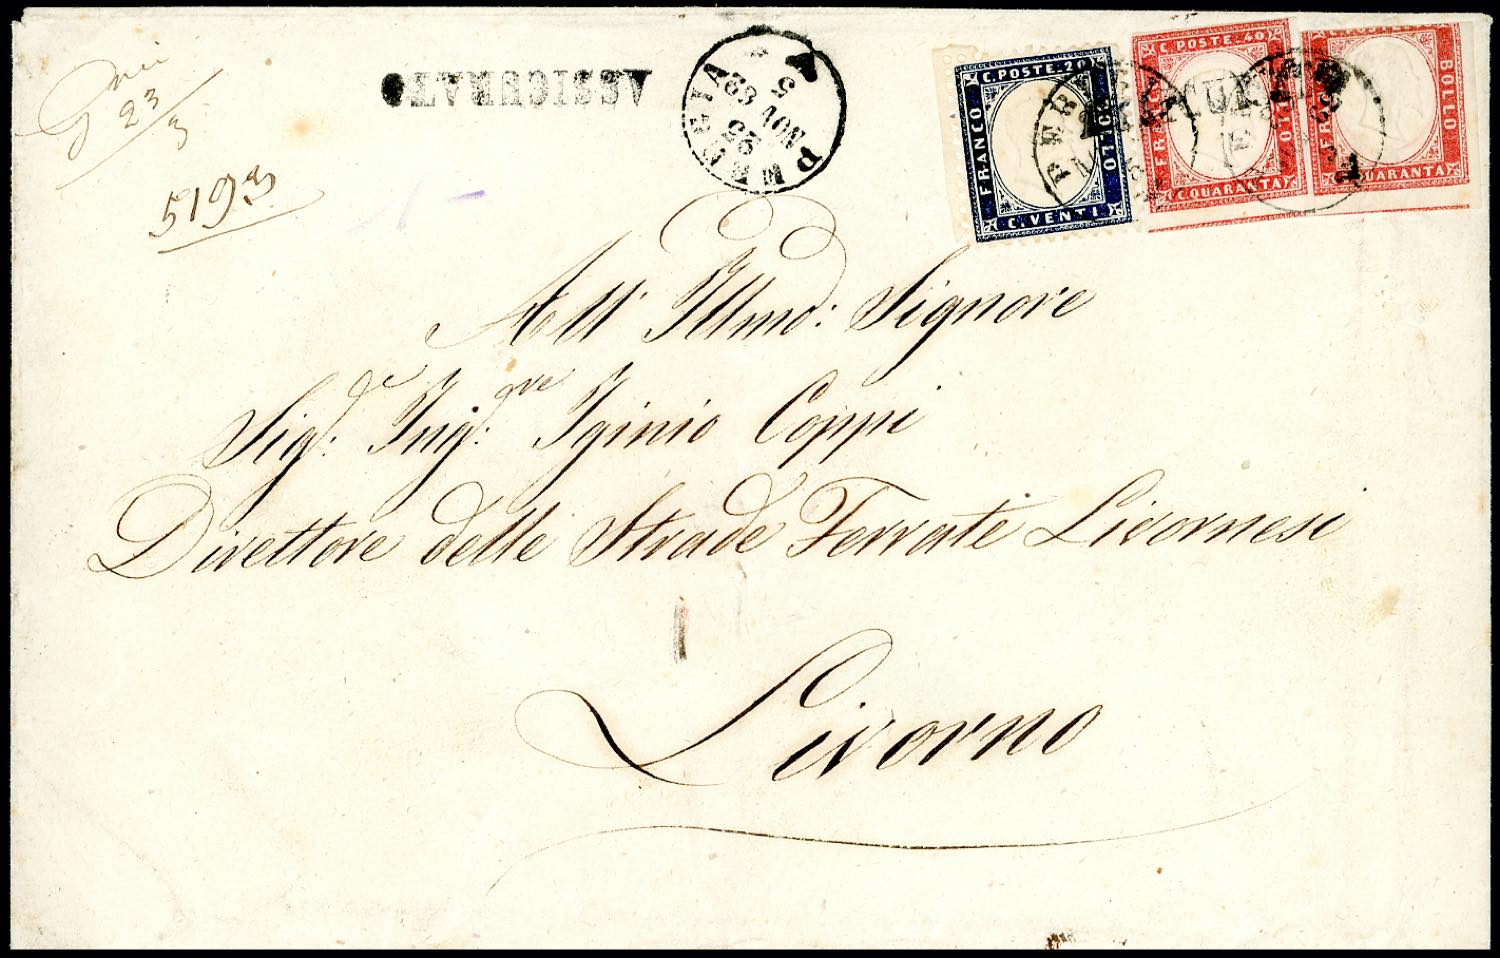 23
3
5193
ASSICURATO
PERUGIA
25
NOV
62
5
C. POSTE. 20
FRANCO
BOLLO
C. VENTI
C. POSTE. 40
FRANCO
BOLLO
C. QUARANTA
BOLLO
QUARANTA
All' Illmo: Signore
Sigr: Ingre: Iginio Coppi
Direttore delle Strade Ferrate Livornesi
Livorno